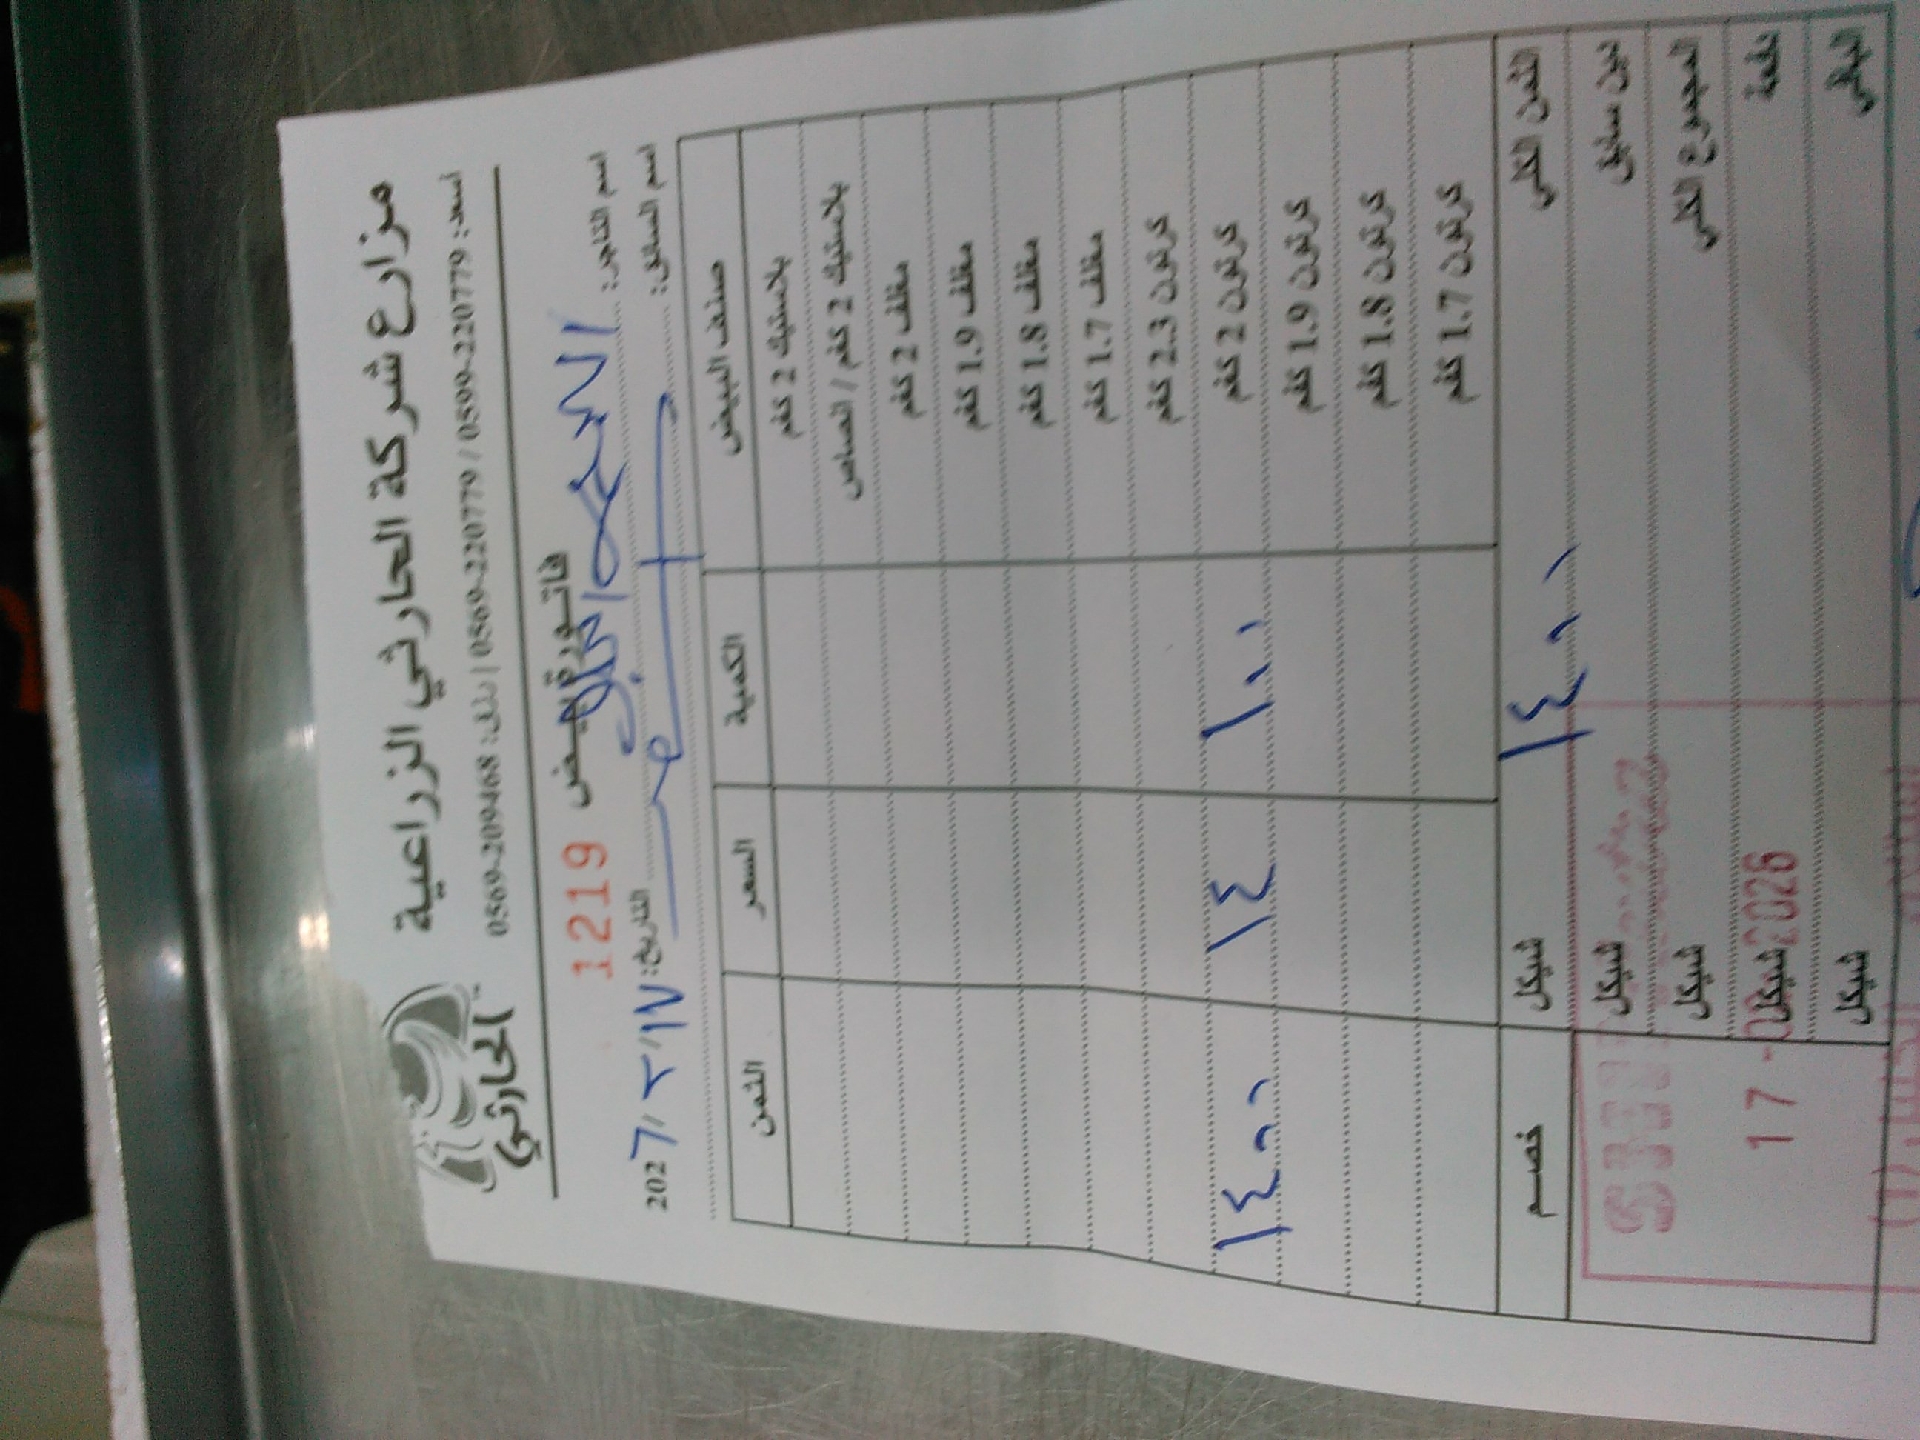 مزارع شركة الحارثي الزراعية
الحارثي
اسعد: 0599-220779 / 0569-220779 | زكي: 0569-209468
فاتورة بيض 1219
اسم التاجر:
التاريخ: ١٧/٣/2026
اسم السائق:
صنف البيض الكمية السعر الثمن
بلاستيك 2 كغم
بلاستيك 2 كغم / انصاص
مغلف 2 كغم
مغلف 1.9 كغم
مغلف 1.8 كغم
مغلف 1.7 كغم
كرتون 2.3 كغم
كرتون 2 كغم ١٠٠ ١٤ ١٤٠٠
كرتون 1.9 كغم
كرتون 1.8 كغم
كرتون 1.7 كغم
الثمن الكلي ١٤٠٠ شيكل خصم
دين سابق شيكل
المجموع الكلي شيكل
دفعة شيكل
17 2026
الباقي شيكل